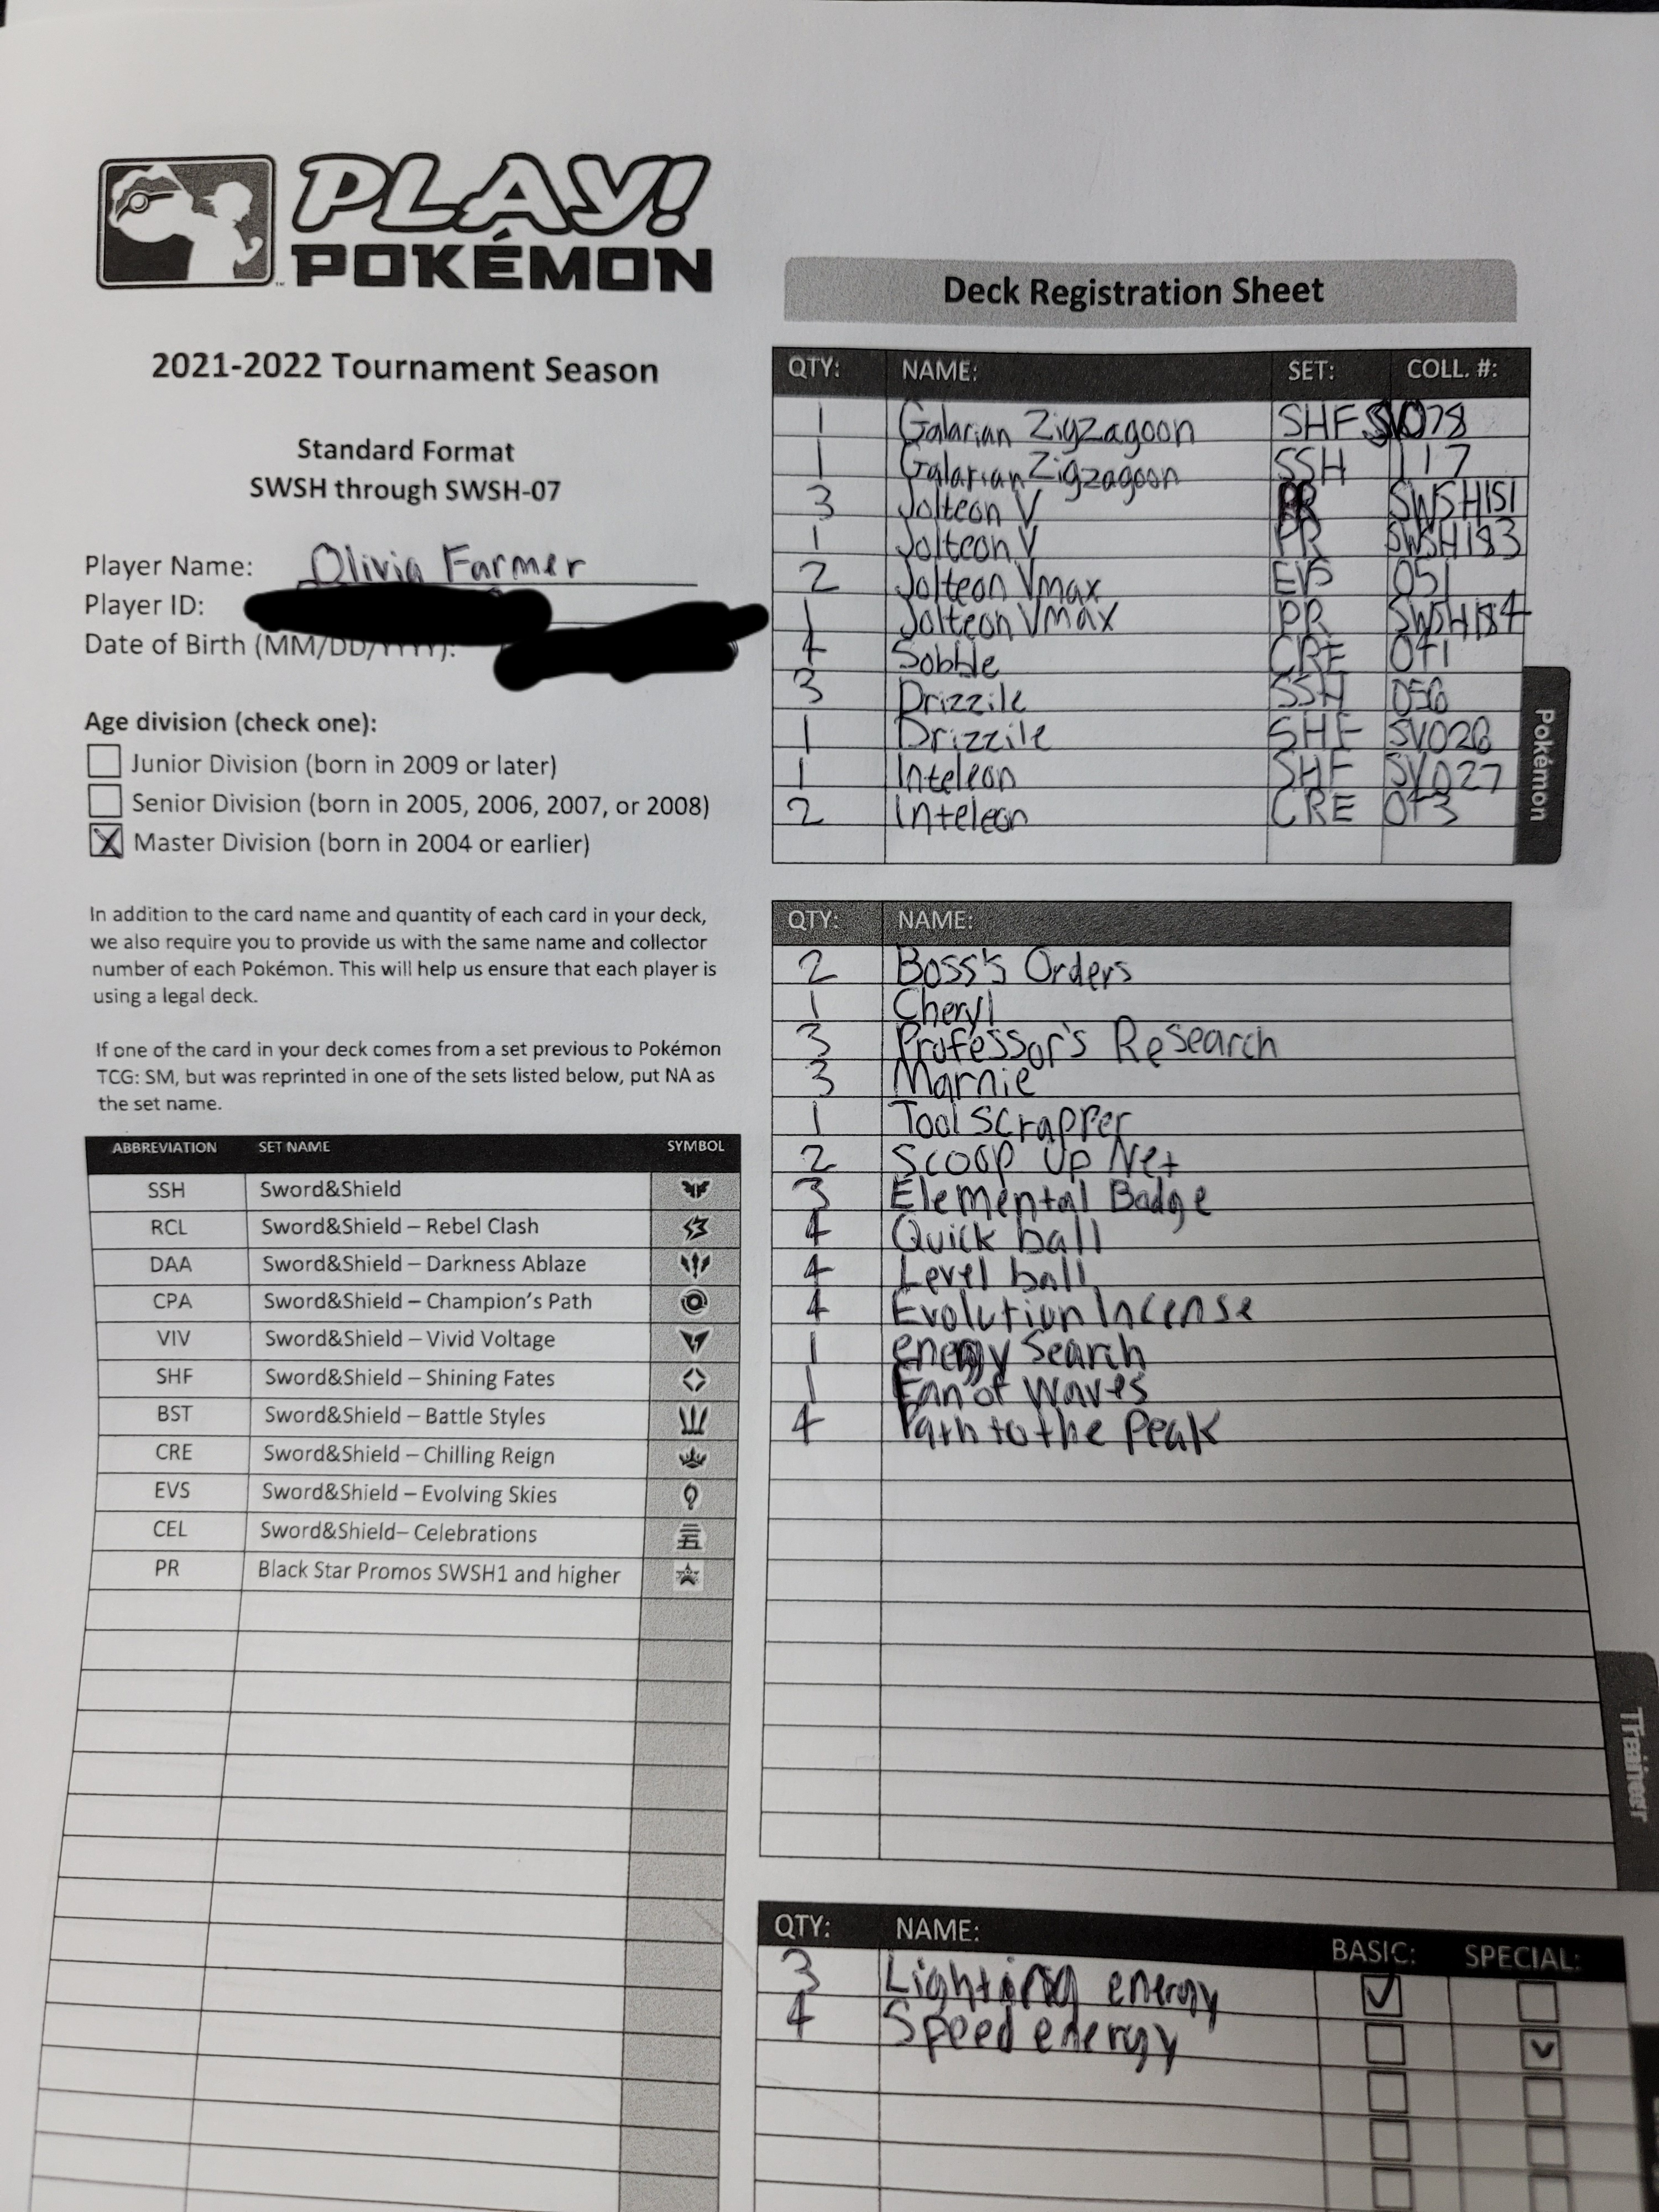 PLAY!
POKÉMON
2021-2022 Tournament Season
Standard Format
SWSH through SWSH-07
Player Name: Olivia Farmer
Player ID:
Date of Birth (MM/DD/YYYY):
Age division (check one):
Junior Division (born in 2009 or later)
Senior Division (born in 2005, 2006, 2007, or 2008)
X Master Division (born in 2004 or earlier)
In addition to the card name and quantity of each card in your deck,
we also require you to provide us with the same name and collector
number of each Pokémon. This will help us ensure that each player is
using a legal deck.
If one of the card in your deck comes from a set previous to Pokémon
TCG: SM, but was reprinted in one of the sets listed below, put NA as
the set name.
ABBREVIATION SET NAME SYMBOL
SSH Sword&Shield
RCL Sword&Shield – Rebel Clash
DAA Sword&Shield – Darkness Ablaze
CPA Sword&Shield – Champion's Path
VIV Sword&Shield – Vivid Voltage
SHF Sword&Shield – Shining Fates
BST Sword&Shield – Battle Styles
CRE Sword&Shield – Chilling Reign
EVS Sword&Shield – Evolving Skies
CEL Sword&Shield– Celebrations
PR Black Star Promos SWSH1 and higher
Deck Registration Sheet
QTY: NAME: SET: COLL. #:
1 Galarian Zigzagoon SHF SV078
1 Galarian Zigzagoon SSH 117
3 Jolteon V PR SWSH151
1 Jolteon V PR SWSH183
2 Jolteon Vmax EVS 051
1 Jolteon Vmax PR SWSH184
4 Sobble CRE 041
3 Drizzile SSH 056
1 Drizzile SHF SV026
1 Inteleon SHF SV027
2 Inteleon CRE 043
Pokémon
QTY: NAME:
2 Boss's Orders
1 Cheryl
3 Professor's Research
3 Marnie
1 Tool scrapper
2 Scoop Up Net
3 Elemental Badge
4 Quick ball
4 Level ball
4 Evolution Incense
1 energy Search
1 Fan of Waves
4 Path to the Peak
Trainer
QTY: NAME: BASIC: SPECIAL:
3 Lighting energy ✓
4 Speed energy ✓